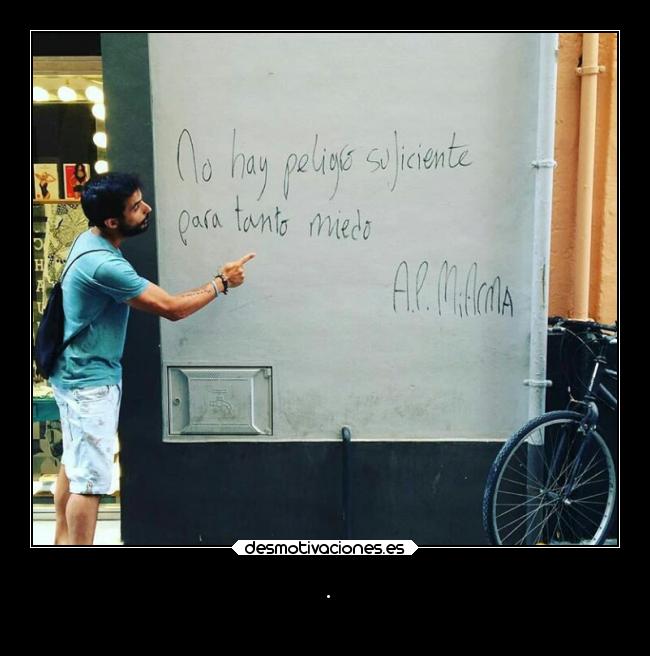 No hay peligro suficiente
para tanto miedo
A.P. MiArMA
desmotivaciones.es
.